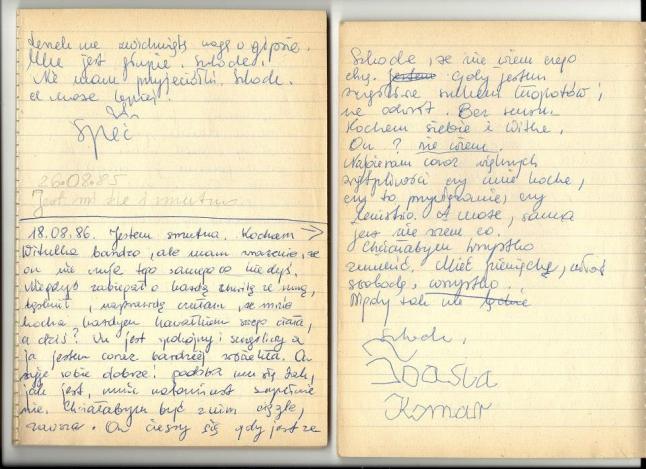 ma zwichniętą nogę w gipsie.
Mnie jest głupio. Szkoda.
Nie mam przyjaciółki. Szkoda.
a może lepiej.
Spać
26.08.85
Jest mi źle i smutno
18.08.86. Jestem smutna. Kocham
Witulka bardzo, ale mam wrażenie, że
on nie czuje tego samego co kiedyś.
Niegdyś zabiegał o każdą chwilę ze mną,
tęsknił, naprawdę czułam, że mnie
kocha każdym kawałkiem swego ciała,
a dziś? On jest spokojny i szczęśliwy a
ja jestem coraz bardziej On
żyje sobie dobrze: podoba mu się tak,
jak jest, mnie natomiast zupełnie
nie. Chciałabym być z nim ciągle,
zawsze. On cieszy się gdy jest ze
Szkoda, że nie wiem czego
chcę. jestem gdy jestem
kłopotów,
na odwrót. Bez sensu
Kocham siebie i Witka.
On? nie wiem.
Nabieram coraz większych
wątpliwości czy mnie kocha,
czy to przyzwyczajenie, czy
lenistwo. A może, sama
już nie wiem co.
Chciałabym wszystko
zmienić. Mieć pieniądze,
swobodę, wszystko.
Nigdy tak nie będzie
Szkoda,
Joasia
Komar